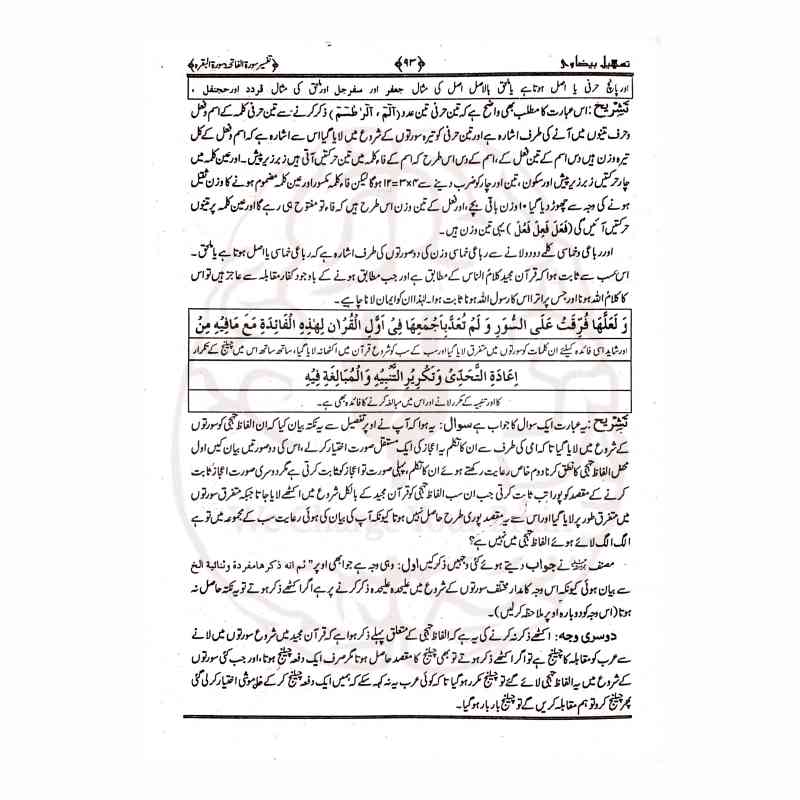 تسهیل بیضاوی ﴿۹۳﴾ ﴿تفسیر سورۃ الفاتحہ وسورۃ البقرہ﴾
اور پانچ حرفی یا اصل ہوتا ہے یا ملحق بالاصل اصل کی مثال جعفر اور سفرجل اور ملحق کی مثال قردد اور حجنفل ،
تشریح: اس عبارت کا مطلب بھی واضح ہے کہ تین حرفی تین عدد (الٓمٓ ، الٓرٰ طٰسٓمٓ) ذکر کرنے سے تین حرفی کلمہ کے اسم وفعل
وحرف تینوں میں آنے کی طرف اشارہ ہے اور تین حرفی کو تیرہ سورتوں کے شروع میں لایا گیا اس سے اشارہ ہے کہ اسم وفعل کے کل
تیرہ وزن ہیں دس اسم کے تین فعل کے ، اسم کے دس اس طرح کہ اسم کے فاء کلمہ میں تین حرکتیں آتی ہیں زبر زیر پیش۔ اور عین کلمہ میں
چار حرکتیں زبر زیر پیش اور سکون ، تین اور چار کو ضرب دینے سے ۴×۳=۱۲ ہوگا لیکن فاء کلمہ مکسور اور عین کلمہ مضموم ہونے کا وزن ثقل
ہونے کی وجہ سے چھوڑ دیا گیا ۱۰ وزن باقی بچے، اور فعل کے تین وزن اس طرح ہیں کہ فاء تو مفتوح ہی رہے گا اور عین کلمہ پر تینوں
حرکتیں آئیں گی (فَعَلَ فَعِلَ فَعُلَ) یہی تین وزن ہیں۔
اور رباعی وخماسی کلمے دو دو لانے سے رباعی خماسی وزن کی دو صورتوں کی طرف اشارہ ہے کہ رباعی خماسی یا اصل ہوتا ہے یا ملحق۔
اس سب سے ثابت ہوا کہ قرآن مجید کلام الناس کے مطابق ہے اور جب مطابق ہونے کے باوجود کفار مقابلہ سے عاجز ہیں تو اس
کا کلام اللہ ہونا اور جس پر اترا اس کا رسول اللہ ہونا ثابت ہوا۔ لہٰذا ان کو ایمان لانا چاہیے۔
وَ لَعَلَّهَا فُرِّقَتْ عَلَى السُّوَرِ وَ لَمْ تُعَدَّ بِاَجْمَعِهَا فِىْ اَوَّلِ الْقُرْاٰنِ لِهٰذِهِ الْفَائِدَةِ مَعَ مَافِيْهِ مِنْ
اور شاید اسی فائدہ کیلئے ان کلمات کو سورتوں میں متفرق لایا گیا اور سب کے سب کو شروع قرآن میں اکٹھا نہ لایا گیا، ساتھ ساتھ اس میں چیلنج کے تکرار
اِعَادَةِ التَّحَدِّىْ وَتَكْرِيْرِ التَّنْبِيْهِ وَالْمُبَالَغَةِ فِيْهِ
کا اور تنبیہ کے مکرر لانے اور اس میں مبالغہ کرنے کا فائدہ بھی ہے۔
تشریح: یہ عبارت ایک سوال کا جواب ہے سوال: یہ ہوا کہ آپ نے اوپر تفصیل سے یہ نکتہ بیان کیا کہ ان الفاظ تہجی کو سورتوں
کے شروع میں لایا گیا تا کہ امی کی طرف سے ان کا تکلم یہ اعجاز کی ایک مستقل صورت اختیار کر لے، اس کی دو صورتیں بیان کیں اول
محض الفاظ تہجی کا نطق کرنا دوم خاص رعایت رکھتے ہوئے ان کا تکلم، پہلی صورت تو اعجاز کو ثابت کرتی ہے مگر دوسری صورت اعجاز ثابت
کرنے کے مقصد کو پورا تب ثابت کرتی جب ان سب الفاظ تہجی کو قرآن مجید کے بالکل شروع میں اکٹھے لایا جاتا جبکہ متفرق سورتوں
میں متفرق طور پر لایا گیا اور اس سے یہ مقصد پوری طرح حاصل نہیں ہوتا کیونکہ آپ کی بیان کی ہوئی رعایت سب کے مجموعہ میں تو ہے
الگ الگ لائے ہوئے الفاظ تہجی میں نہیں ہے؟
مصنف نے جواب دیتے ہوئے کئی وجہیں ذکر کیں اول: وہی وجہ ہے جو ابھی اوپر "ثم انه ذكرها مفردة وثنائية الخ
سے بیان ہوئی کیونکہ اس وجہ کا مدار مختلف سورتوں کے شروع میں علیحدہ علیحدہ ذکر کرنے پر ہے اگر اکٹھے ذکر ہوتے تو یہ نکتہ حاصل نہ
ہوتا (اس وجہ کو دوبارہ اوپر ملاحظہ کرلیں)۔
دوسری وجہ: اکٹھے ذکر نہ کرنے کی یہ ہے کہ الفاظ تہجی کے متعلق پہلے ذکر ہوا ہے کہ قرآن مجید میں شروع سورتوں میں لانے
سے عرب کو مقابلہ کا چیلنج ہے تو اگر اکٹھے ذکر ہوتے تو بھی چیلنج کا مقصد حاصل ہوتا مگر صرف ایک دفعہ چیلنج ہوتا، اور جب کئی سورتوں
کے شروع میں یہ الفاظ تہجی لائے گئے تو چیلنج مکرر ہوگیا تا کہ کوئی عرب یہ نہ کہہ سکے کہ ہمیں ایک دفعہ چیلنج کر کے خاموشی اختیار کر لی گئی
پھر چیلنج کرو تو ہم مقابلہ کریں گے تو چیلنج بار بار ہوگیا۔